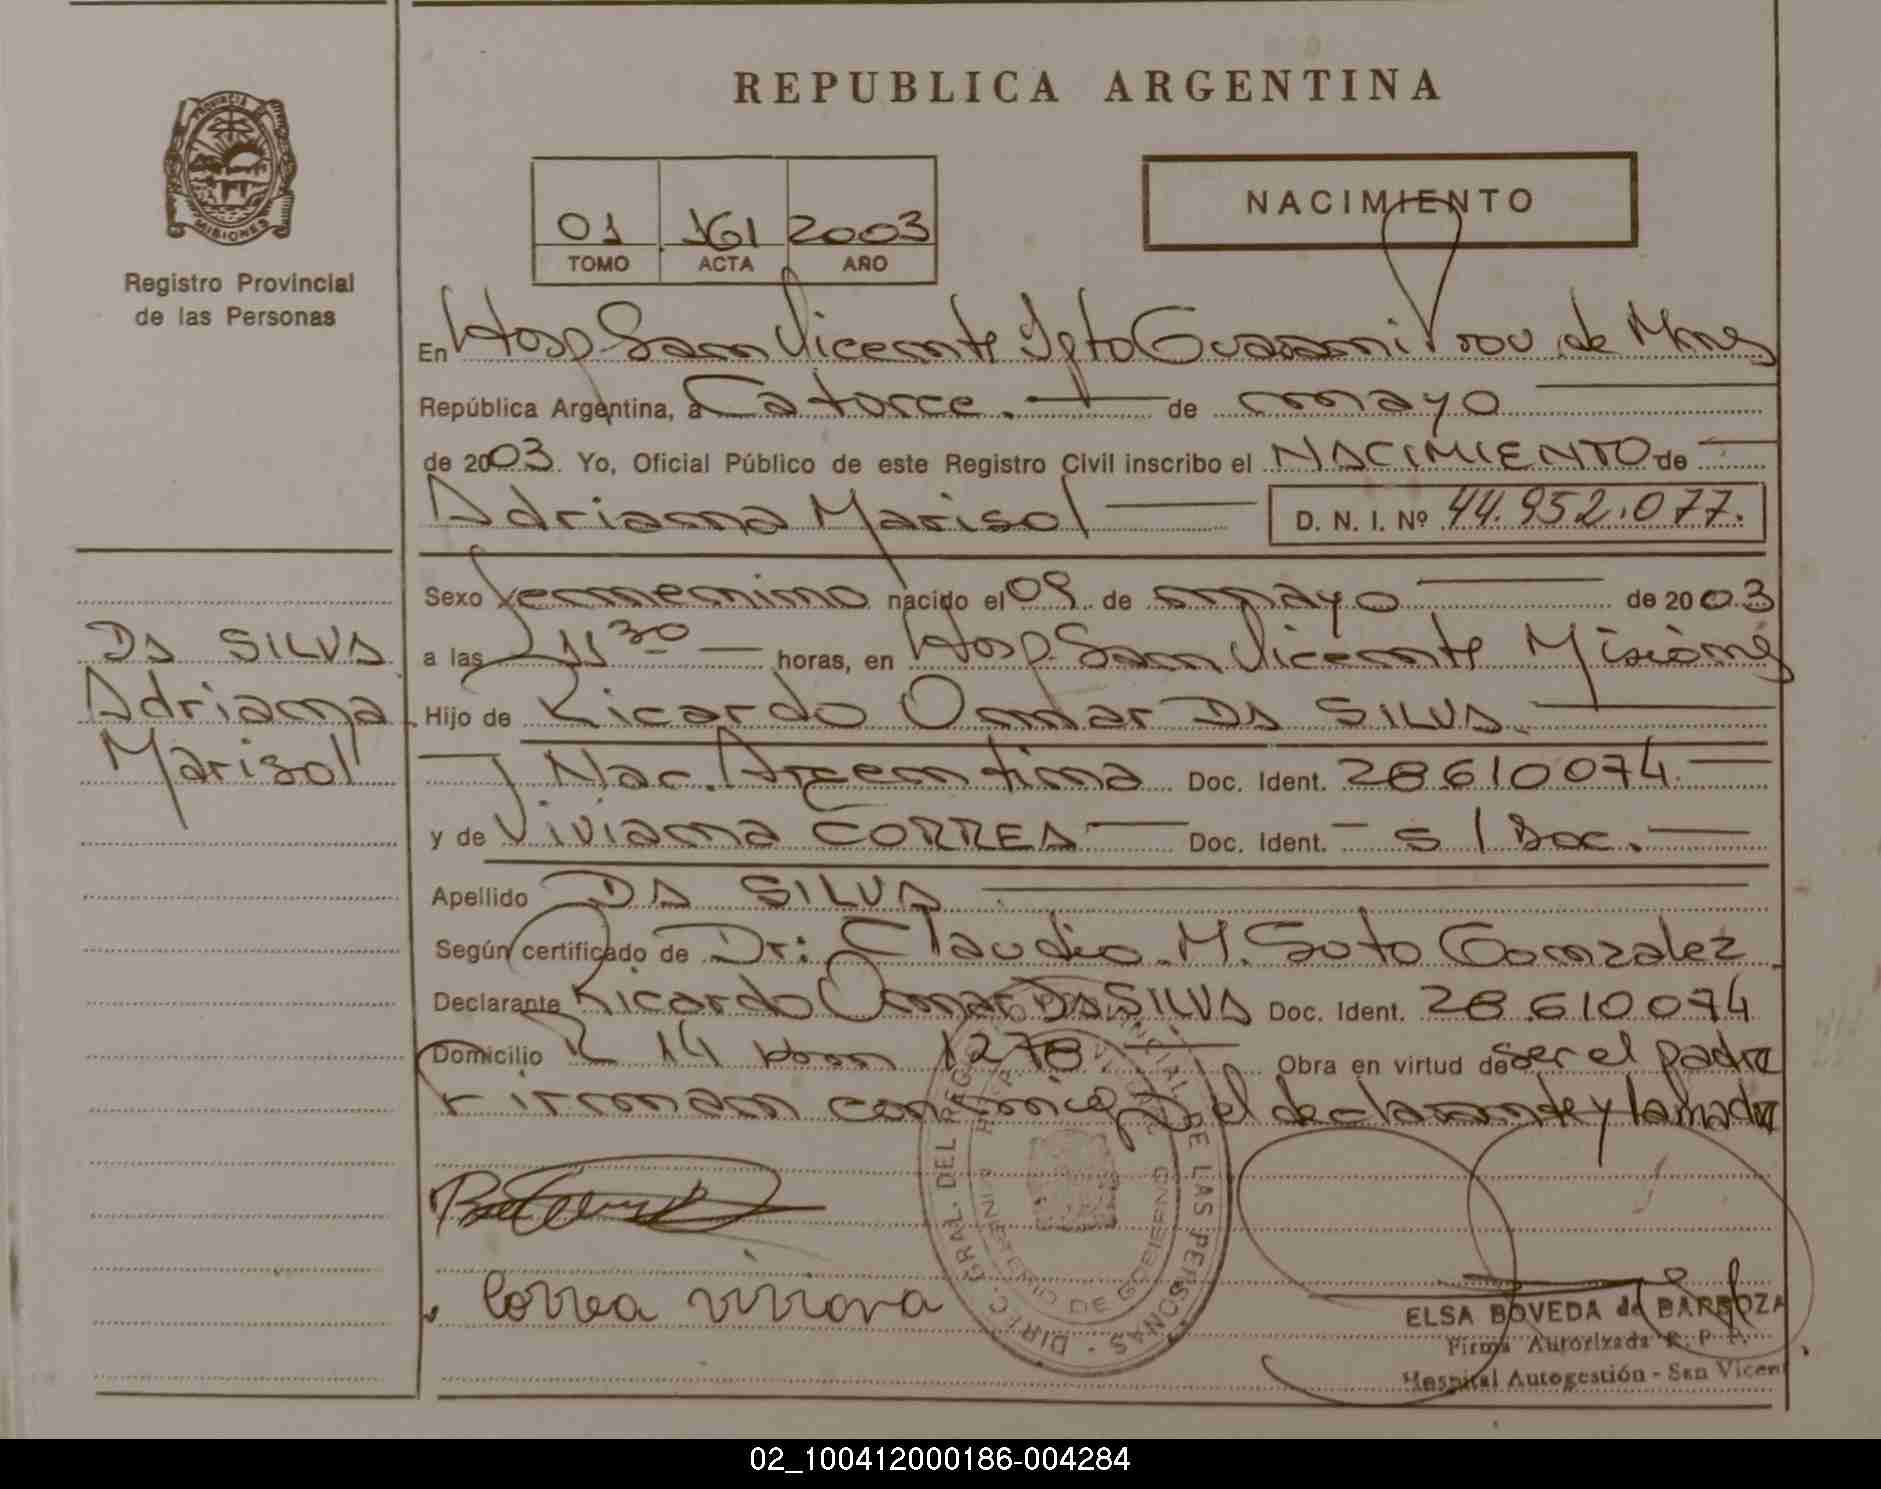 REPUBLICA ARGENTINA
PROVINCIA
MISIONES
Registro Provincial
de las Personas
01 161 2003
TOMO ACTA AÑO
NACIMIENTO
En Hosp San Vicente Dpto Guarani Prov. de Mnes
República Argentina, a Catorce. de mayo
de 2003 Yo, Oficial Público de este Registro Civil inscribo el NACIMIENTO de
Adriana Marisol D. N. I. Nº 44.952.077.
Sexo femenino nacido el 09 de mayo de 2003
a las 11 30 horas, en Hosp. San Vicente Misiones
DA SILVA
Adriana
Marisol
Hijo de Ricardo Omar DA SILVA.
Nac. Argentina Doc. Ident. 28610074.
y de Viviana CORREA Doc. Ident. s/Doc.
Apellido DA SILVA
Según certificado de Dr: Claudio. M. Soto Gonzalez
Declarante Ricardo Omar DA SILVA Doc. Ident. 28.610074
Domicilio R 14 km 1278 Obra en virtud de ser el padre
Firman conmigo el declarante y la madre
DIREC. GRAL. DEL REG. PROVINCIAL DE LAS PERSONAS
MINISTERIO DE GOBIERNO
Correa viviana
ELSA BOVEDA de BARBOZA
Firma Autorizada R. P. P.
Hospital Autogestión - San Vicen
02_100412000186-004284